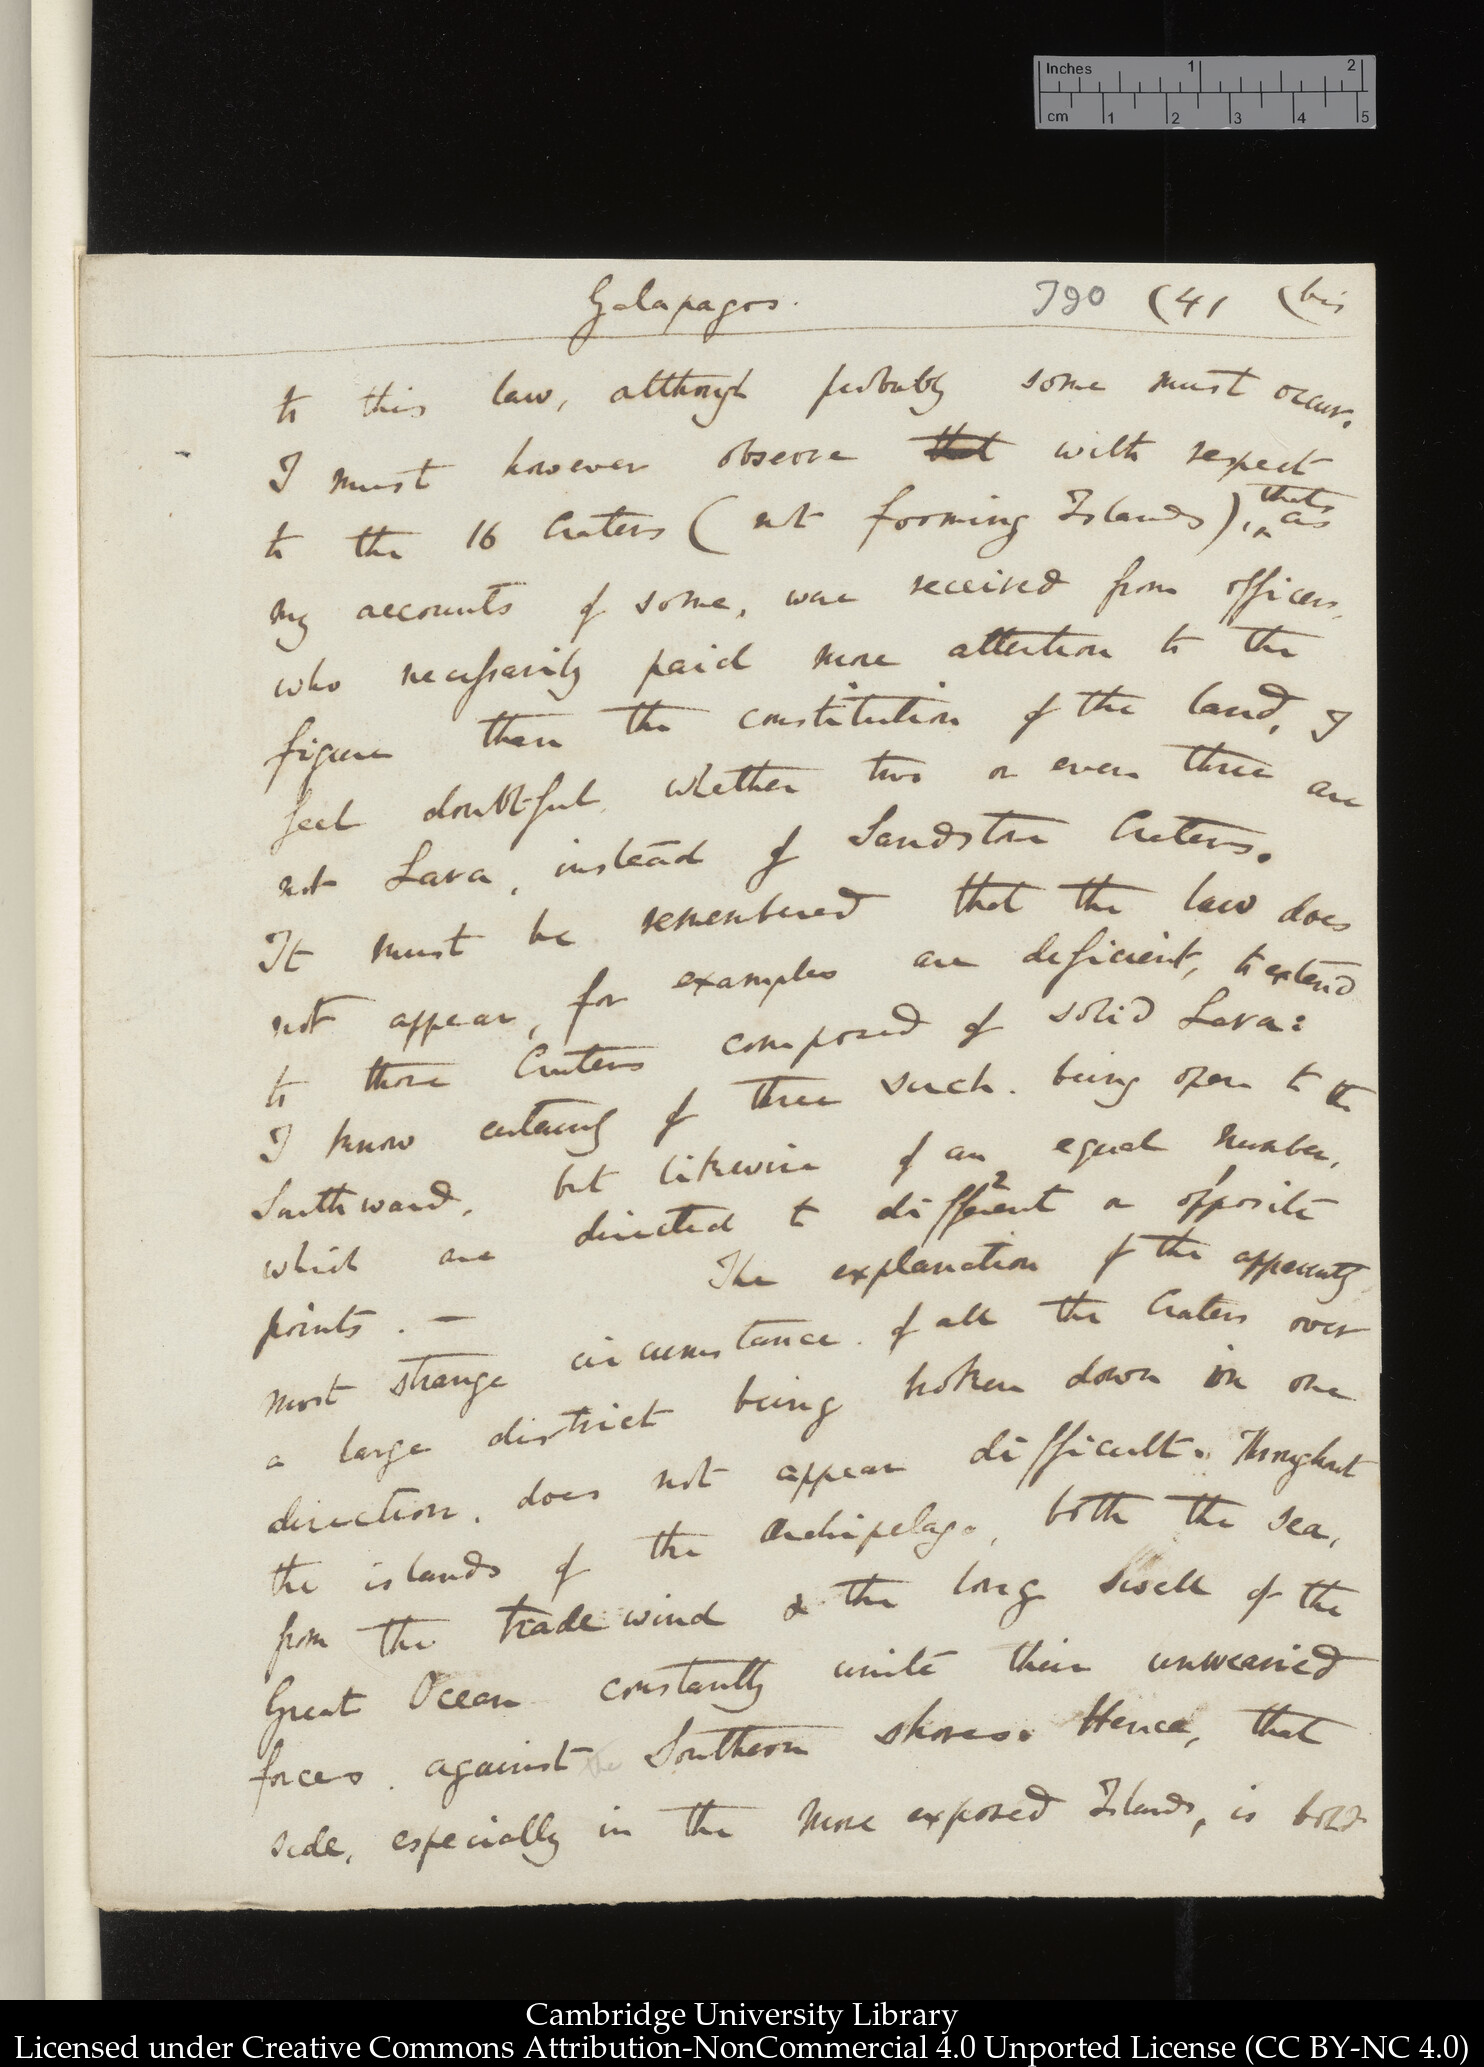 Inches 1 2
cm 1 2 3 4 5
Galapagos. 790 (41 (bis
to this law, although probably some must occur.
I must however observe that with respect
to the 16 Craters (not forming Islands), that, as
my accounts of some, were received from officers,
who necessarily paid more attention to the
figure than the constitution of the land, I
feel doubtful whether two or even three are
not Lava, instead of Sandstone Craters.
It must be remembered that the law does
not appear, for examples are deficient, to extend
to those Craters composed of solid Lava:
I know certainly of three such being open to the
Southward, but likewise of an equal number,
which are directed to different 2 or opposite 1
points. — The explanation of the apparently
most strange circumstance of all the Craters over
a large district being broken down in one
direction, does not appear difficult. Throughout
the islands of the Archipelago, both the sea,
from the trade wind & the long swell of the
Great Ocean constantly unite their unwearied
forces against the Southern shores. Hence, that
side, especially in the more exposed Islands, is bold
Cambridge University Library
Licensed under Creative Commons Attribution-NonCommercial 4.0 Unported License (CC BY-NC 4.0)